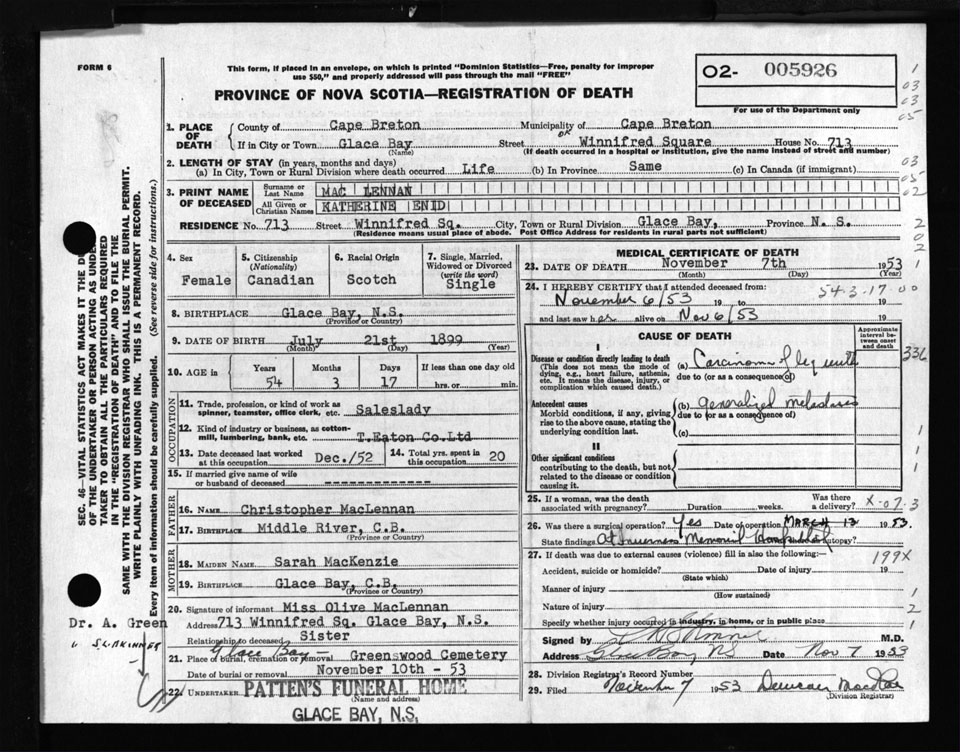 FORM 6
This form, if placed in an envelope, on which is printed "Dominion Statistics—Free, penalty for improper
use $50," and properly addressed will pass through the mail "FREE"
PROVINCE OF NOVA SCOTIA—REGISTRATION OF DEATH
O2- 005926
For use of the Department only
1. PLACE OF DEATH
County of Cape Breton Municipality of Cape Breton
or
If in City or Town Glace Bay Street Winnifred Square House No. 713
(Name) (If death occurred in a hospital or institution, give the name instead of street and number)
2. LENGTH OF STAY (in years, months and days)
(a) In City, Town or Rural Division where death occurred Life (b) In Province Same (c) In Canada (if immigrant)
3. PRINT NAME OF DECEASED
Surname or Last Name MAC LENNAN
All Given or Christian Names KATHERINE ENID
RESIDENCE No. 713 Street Winnifred Sq. City, Town or Rural Division Glace Bay, Province N. S.
(Residence means usual place of abode. Post Office Address for residents in rural parts not sufficient)
4. Sex Female
5. Citizenship (Nationality) Canadian
6. Racial Origin Scotch
7. Single, Married, Widowed or Divorced (write the word) Single
8. BIRTHPLACE Glace Bay, N.S.
(Province or Country)
9. DATE OF BIRTH July 21st 1899
(Month) (Day) (Year)
10. AGE in Years Months Days If less than one day old
54 3 17 hrs. or min.
OCCUPATION
11. Trade, profession, or kind of work as
spinner, teamster, office clerk, etc. Saleslady
12. Kind of industry or business, as cotton-
mill, lumbering, bank, etc. T.Eaton Co.Ltd
13. Date deceased last worked
at this occupation Dec./52
14. Total yrs. spent in
this occupation 20
15. If married give name of wife
or husband of deceased
FATHER
16. NAME Christopher MacLennan
17. BIRTHPLACE Middle River, C.B.
(Province or Country)
MOTHER
18. MAIDEN NAME Sarah MacKenzie
19. BIRTHPLACE Glace Bay, C.B.
(Province or Country)
20. Signature of informant Miss Olive MacLennan
Address 713 Winnifred Sq. Glace Bay, N.S.
Relationship to deceased Sister
Glace Bay –
21. Place of burial, cremation or removal Greenswood Cemetery
Date of burial or removal November 10th - 53
22. UNDERTAKER PATTEN'S FUNERAL HOME
(Name and address)
GLACE BAY, N.S.
MEDICAL CERTIFICATE OF DEATH
23. DATE OF DEATH November 7th 1953
(Month) (Day) (Year)
24. I HEREBY CERTIFY that I attended deceased from:
54-3-17-00
November 6/53 19 to 19
and last saw her alive on Nov 6/53 19
CAUSE OF DEATH
Approximate interval between onset and death
I
Disease or condition directly leading to death
(This does not mean the mode of
dying, e.g., heart failure, asthenia,
etc. It means the disease, injury, or
complication which caused death.)
(a) Carcinoma of leg with
due to (or as a consequence of)
Antecedent causes
Morbid conditions, if any, giving
rise to the above cause, stating the
underlying condition last.
(b) generalized metastases
due to (or as a consequence of)
(c)
II
Other significant conditions
contributing to the death, but not
related to the disease or condition
causing it.
25. If a woman, was the death
associated with pregnancy? Duration weeks. Was there a delivery?
X-07.3
26. Was there a surgical operation? Yes Date of operation MARCH 12 1953.
State findings At Inverness Memorial Hospital autopsy?
27. If death was due to external causes (violence) fill in also the following:—
Accident, suicide or homicide? Date of injury 19
(State which)
199X
Manner of injury
(How sustained)
Nature of injury
Specify whether injury occurred in industry, in home, or in public place
Signed by M.D.
Address Glace Bay, NS Date Nov 7 1953
28. Division Registrar's Record Number
29. Filed November 7 1953 Duncan MacRae
(Division Registrar)
SEC. 46—VITAL STATISTICS ACT MAKES IT THE
OF THE UNDERTAKER OR PERSON ACTING AS UNDER
TAKER TO OBTAIN ALL THE PARTICULARS REQUIRED
IN THE "REGISTRATION OF DEATH" AND TO FILE THE
SAME WITH THE DIVISION REGISTRAR WHO SHALL ISSUE THE BURIAL PERMIT.
WRITE PLAINLY WITH UNFADING INK. THIS IS A PERMANENT RECORD.
Every item of information should be carefully supplied. (See reverse side for instructions.)
Dr. A. Green
1
03
03
05
03
05
02
2
0
2
1
336
1
1
1
3
1
2
1